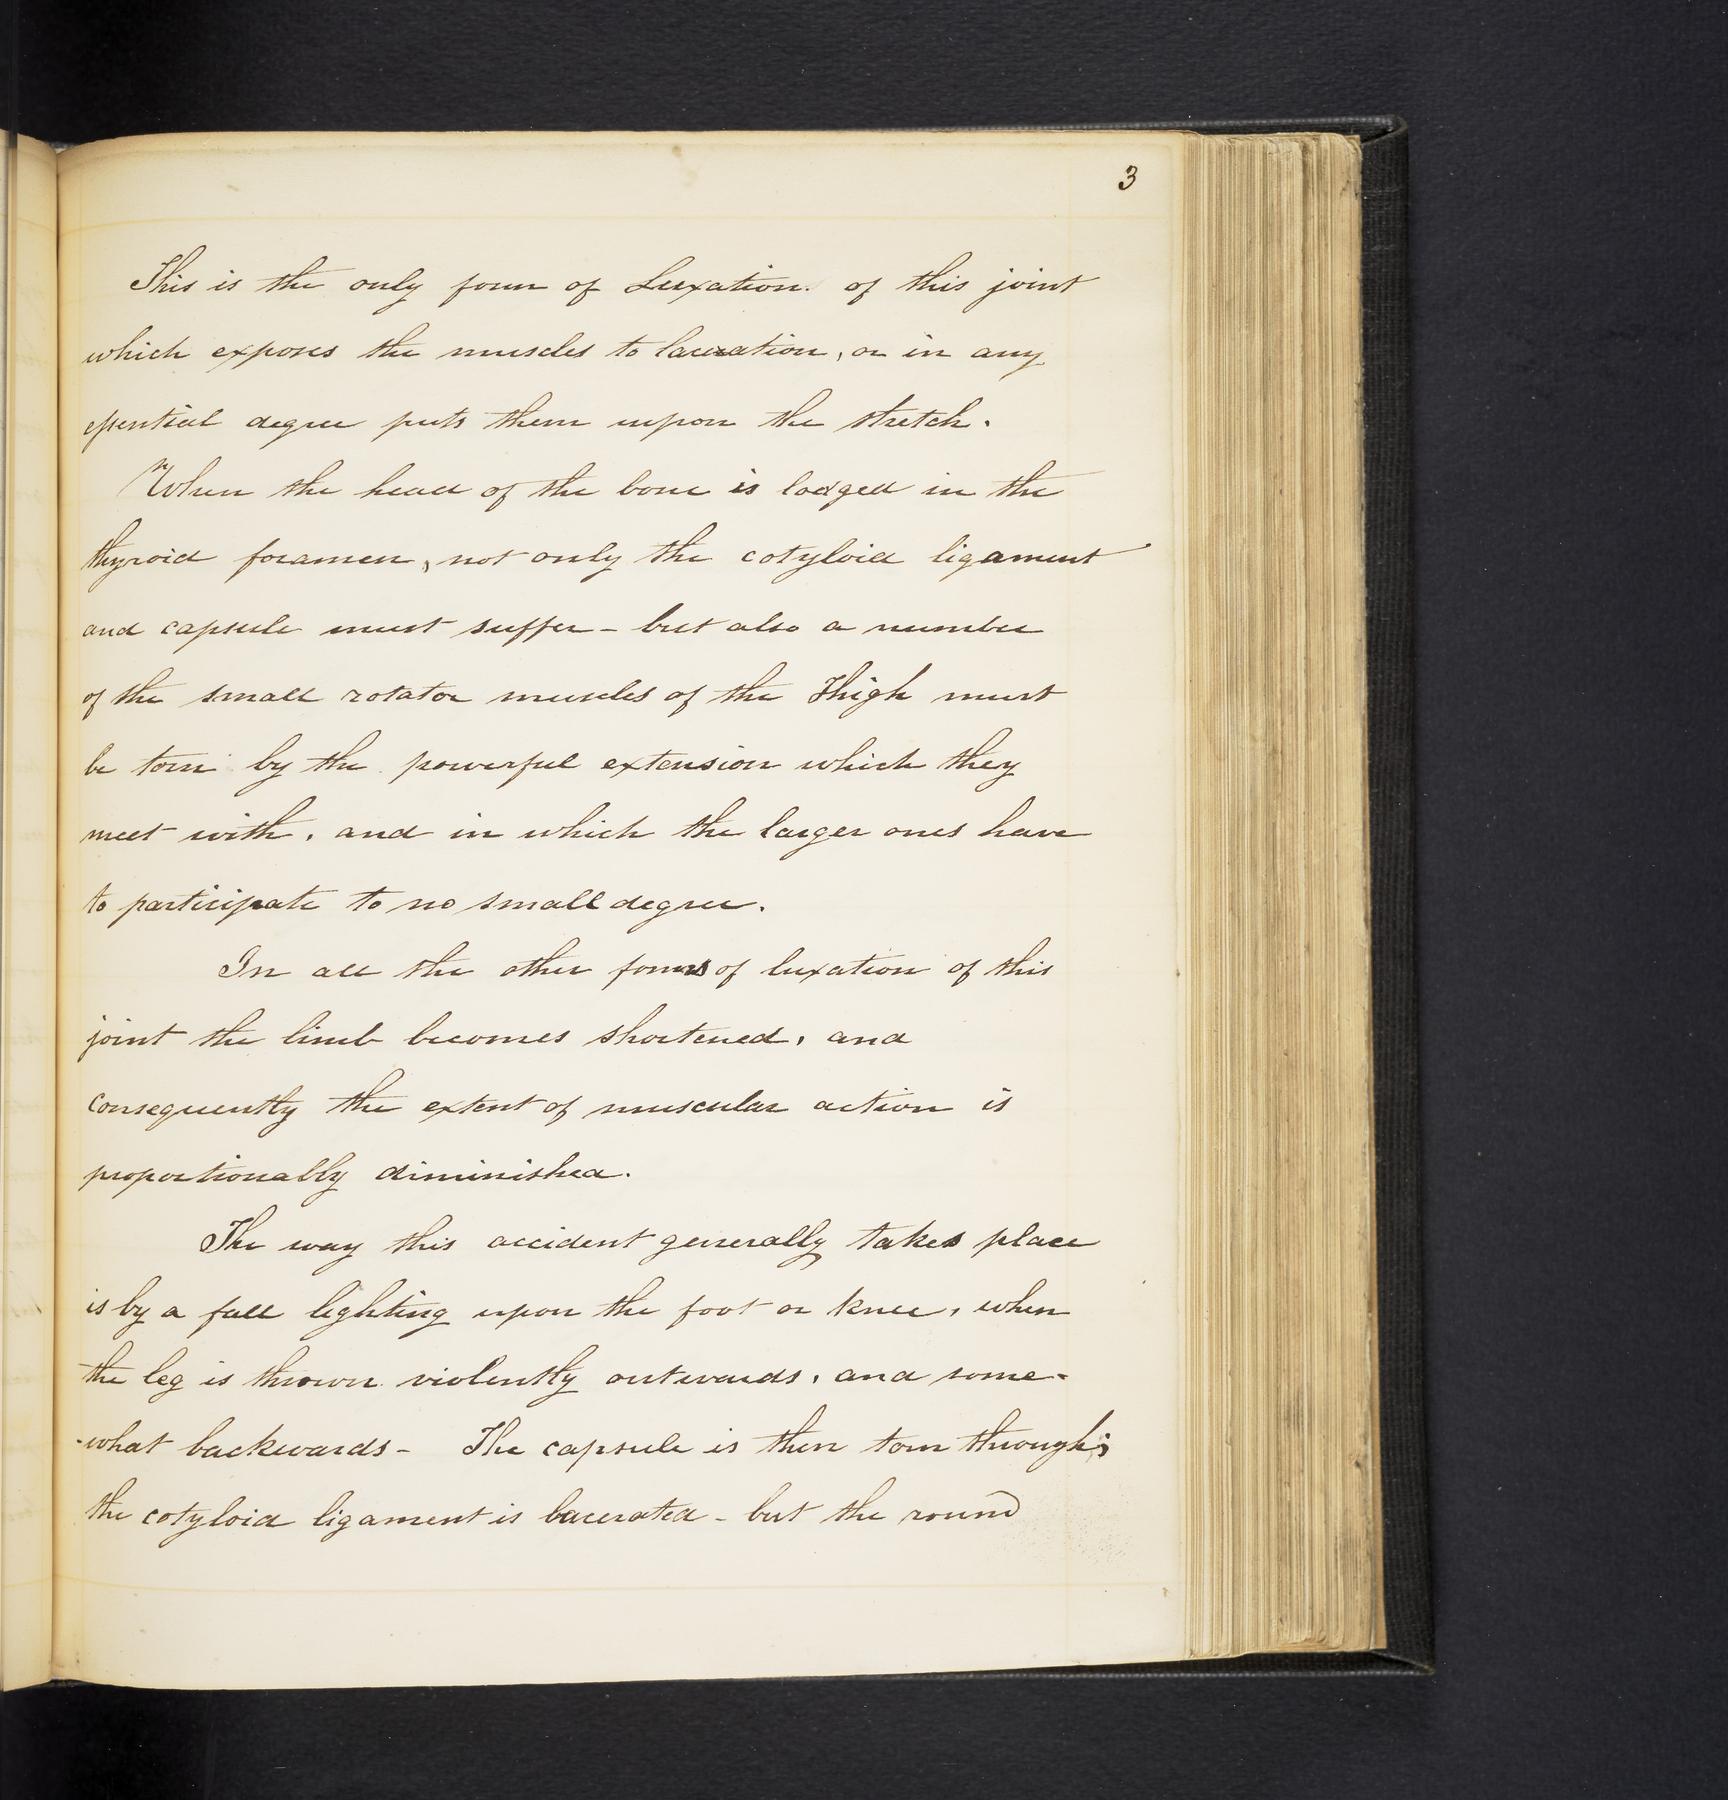 3
This is the only form of Luxation. of this joint
which exposes the muscles to laceration, or in any
essential degree puts them upon the stretch.
When the head of the bone is lodged in the
thyroid foramen, not only the cotyloid ligament
and capsule must suffer - but also a number
of the small rotator muscles of the Thigh must
be torn by the powerful extension which they
meet with, and in which the larger ones have
to participate to no small degree.
In all the other forms of luxation of this
joint the limb becomes shortened, and
consequently the extent of muscular action is
proportionally diminished.
The way this accident generally takes place
is by a fall lighting upon the foot or knee, when
the leg is thrown violently outwards, and some-
-what backwards - The capsule is then torn through;
the cotyloid ligament is lacerated - but the round